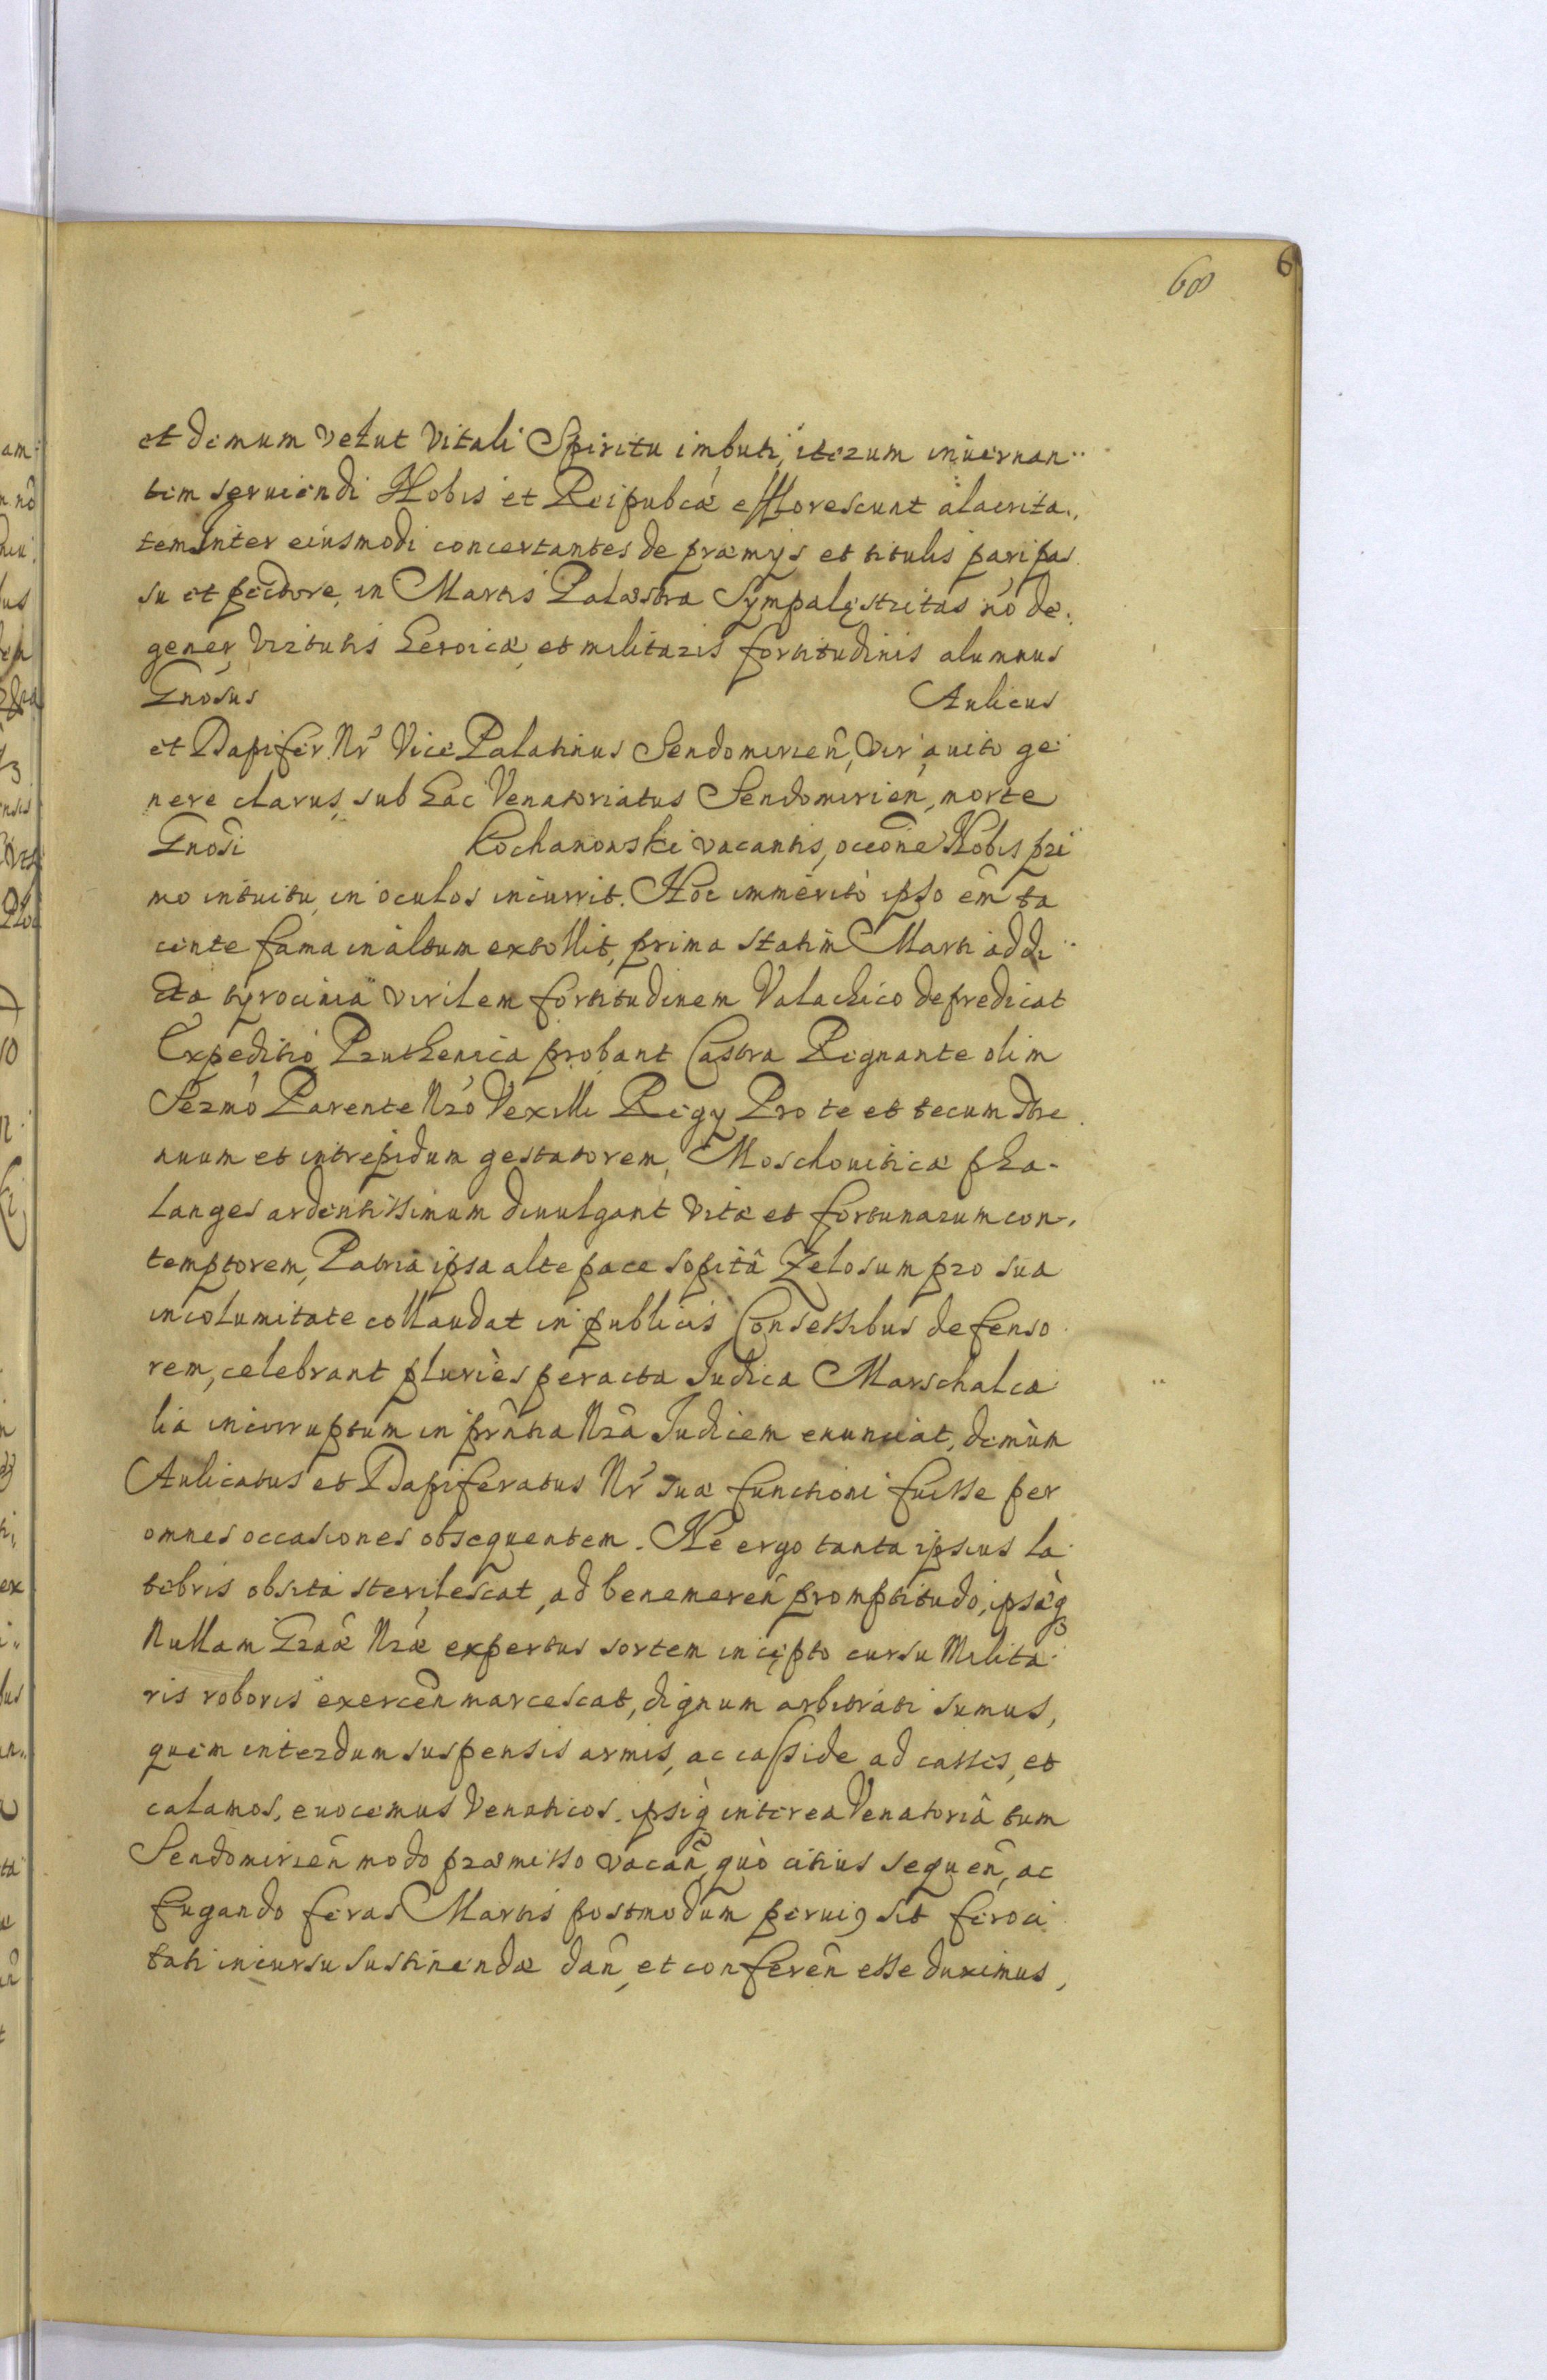 68
6
et demum velut Vitali Spiritu imbuti, iterum inuernan
tem seruiendi Nobis et Reipubcæ efflorescunt alacrita
tem Inter eiusmodi concertantes de præmijs et titulis pari pas
su et pectore, in Martis Palæstra Sympalęstritas nō de
gener, Virtutis heroicæ, et militaris fortitudinis alumnus
Gnosus Aulicus
et Dapifer Nr Vice Palatinus Sendomirien̄, Vir auito ge
nere clarus, sub hac Venatoriatus Sendomirien, morte
Gnosi Kochanowski vacantis, occōne Nobis pri
mo intuitu, in oculos incurrit. Hoc immeritò ipso em̄ ta
cente fama in altum extollit, prima statim Marti addi
cta tyrocinia virilem fortitudinem Valachico depredicat
Expeditio, Pruthenica probant Castra Regnante olim
Sermo Parente Nro Vexilli Regy Pro te et tecum stre
nuum et intrepidum gestatorem, Moschouiticæ pha-
langes ardentissimum diuulgant Vitæ et fortunarum con
temptorem, Patria ipsa alte pace sopitâ Zelosum pro sua
incolumitate collaudat in publicis Consessibus defenso
rem, celebrant pluriès peracta Iudica Marschalca
lia incorruptum in prn̄tia Nrâ Iudicem enunciat, demùm
Aulicatus et Dapiferatus Nr suæ functioni fuisse per
omnes occasiones obsequentem. Ne ergo tanta ipsius la
tebris obsita sterilescat, ad benemeren̄ promptitudo, ipsèq3
Nullam Graæ Nræ expertus sortem incępto cursu Milita
ris roboris exercen̄ marcescat, dignum arbitrati sumus,
quem interdum suspensis armis, ac casside ad casses, et
calamos, euocemus Venaticos. ipsiq̀ interea Venatoriâtum
Sendomirien̄ modo præmisso vacan̄, quò citius sequen̄, ac
fugando feras Martis postmodum peruig sit feroci
tati incursu sustinendæ dan̄, et conferen̄ esse duximus,